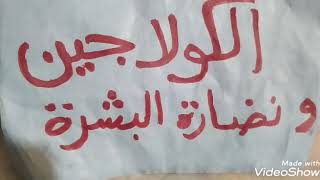 الكولاجين
و نضارة البشرة
Made with
VideoShow